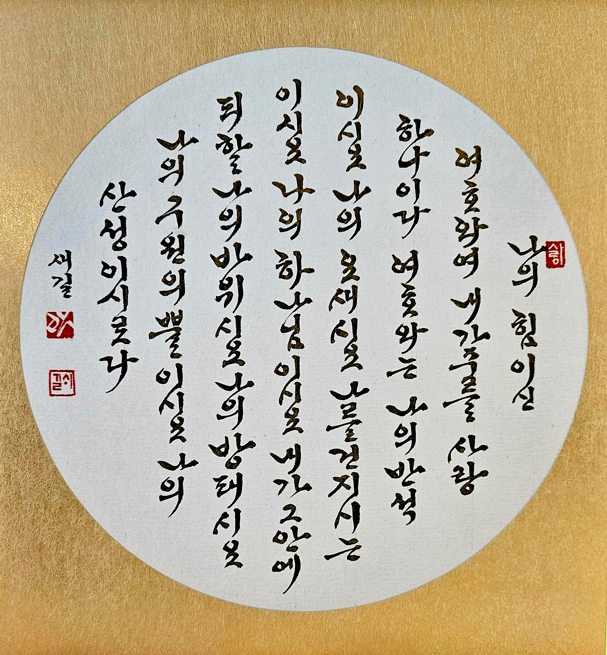 나의 힘이신
여호와여 내가 주를 사랑
하나이다 여호와는 나의 반석
이시요 나의 요새시요 나를 건지시는
이시요 나의 하나님이시요 내가 그 안에
피할 나의 바위시요 나의 방패시요
나의 구원의 뿔이시요 나의
산성이시로다
새길